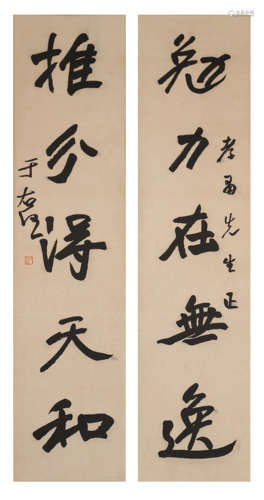 勉力在無逸
先生正
推分得天和
于右任